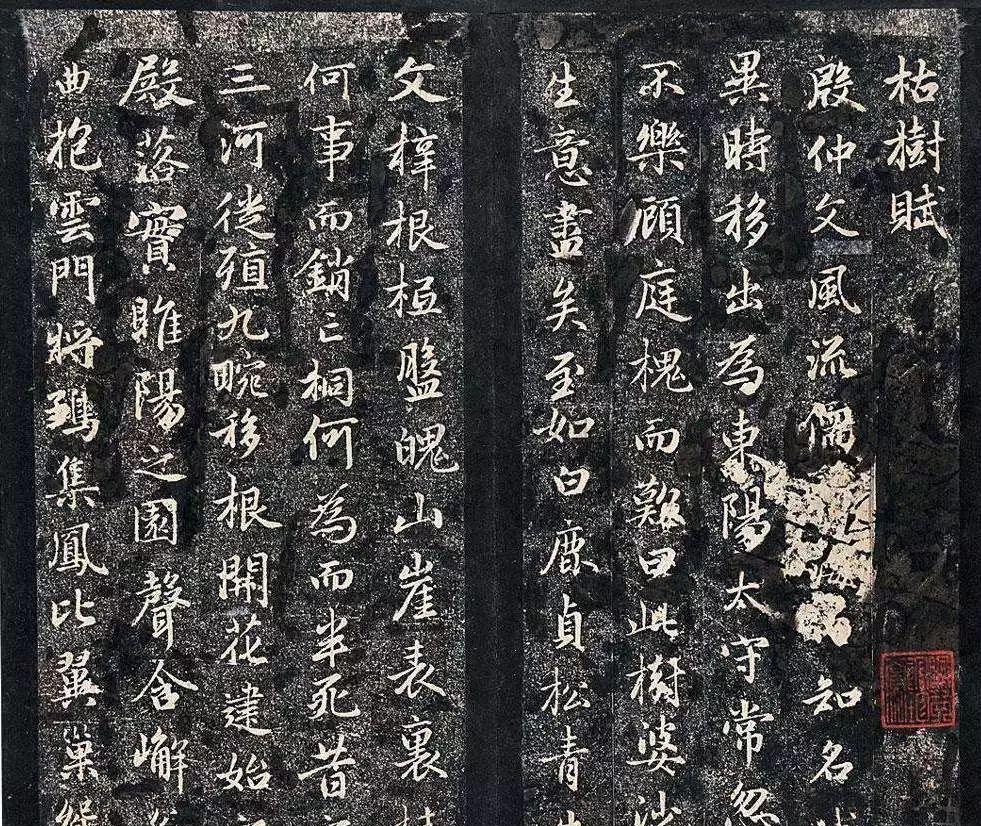 枯樹賦
殷仲文風流儒知名
異時移出為東陽太守常忽
不樂顧庭槐而歎曰此樹婆
生意盡矣至如白鹿貞松青
文梓根柢盤魄山崖表裏
何事而銷亡桐何為而半死昔
三河徙殖九畹移根開花建始
殿落實睢陽之園聲含嶰
曲抱雲門將鶵集鳳比翼巢